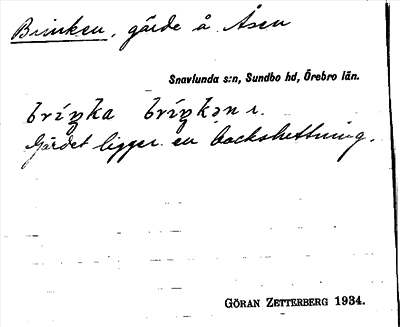 Brinken, gärde å Åsen
Snavlunda s:n, Sundbo hd, Örebro län.
bríŋka bríŋkən r.
Gärdet ligger en backsluttning.
GÖRAN ZETTERBERG 1934.